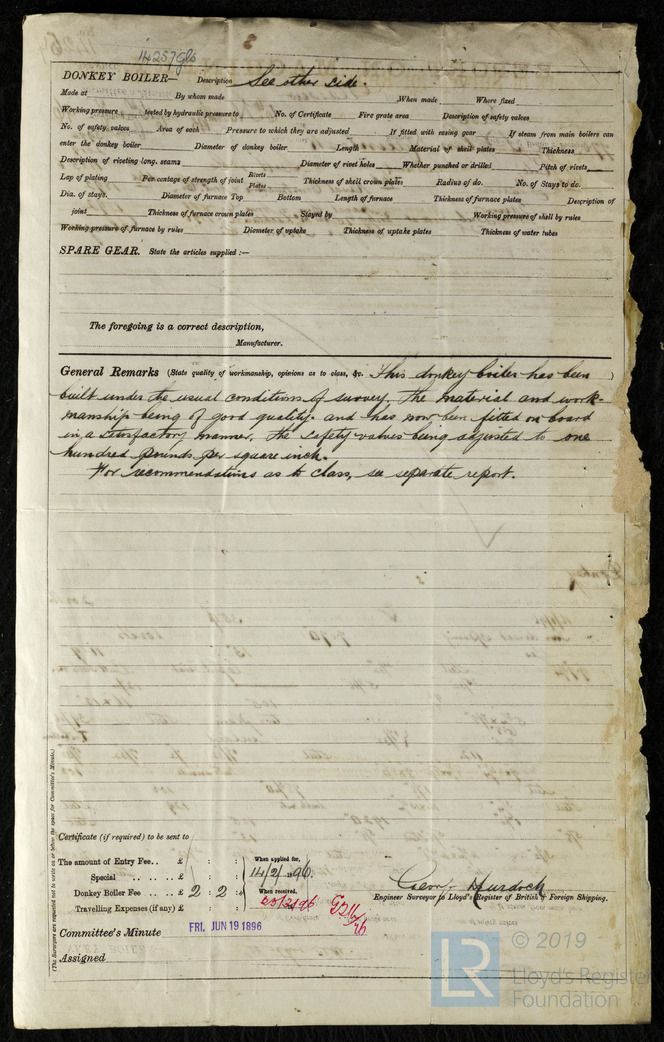 14257 Gls
DONKEY BOILER— Description See other side.
Made at By whom made When made Where fixed
Working pressure tested by hydraulic pressure to No. of Certificate Fire grate area Description of safety valves
No. of safety valves Area of each Pressure to which they are adjusted If fitted with easing gear If steam from main boilers can
enter the donkey boiler Diameter of donkey boiler Length Material of shell plates Thickness
Description of riveting long. seams Diameter of rivet holes Whether punched or drilled Pitch of rivets
Lap of plating Per centage of strength of joint Rivets Plates Thickness of shell crown plates Radius of do. No. of Stays to do.
Dia. of stays. Diameter of furnace Top Bottom Length of furnace Thickness of furnace plates Description of
joint Thickness of furnace crown plates Stayed by Working pressure of shell by rules
Working pressure of furnace by rules Diameter of uptake Thickness of uptake plates Thickness of water tubes
SPARE GEAR. State the articles supplied:—
The foregoing is a correct description,
Manufacturer.
General Remarks (State quality of workmanship, opinions as to class, &c. This donkey boiler has been )
built under the usual conditions of survey, the material and work-
manship being of good quality. and has now been fitted on board
in a satisfactory manner, the safety valves being adjusted to one
hundred pounds per square inch.
For recommendations as to class, see separate report.
(The Surveyors are requested not to write on or below the space for Committee's Minute.)
Certificate (if required) to be sent to
The amount of Entry Fee.. £ : : When applied for,
Special .. .. £ : : 14/2/1896.
Donkey Boiler Fee .. .. .. £ 2 : 2 : When received,
Travelling Expenses (if any) £ : :
George Murdoch
Engineer Surveyor to Lloyd's Register of British & Foreign Shipping.
Committee's Minute FRI. JUN 19 1896
Assigned
LR © 2019
Lloyd's Register
Foundation